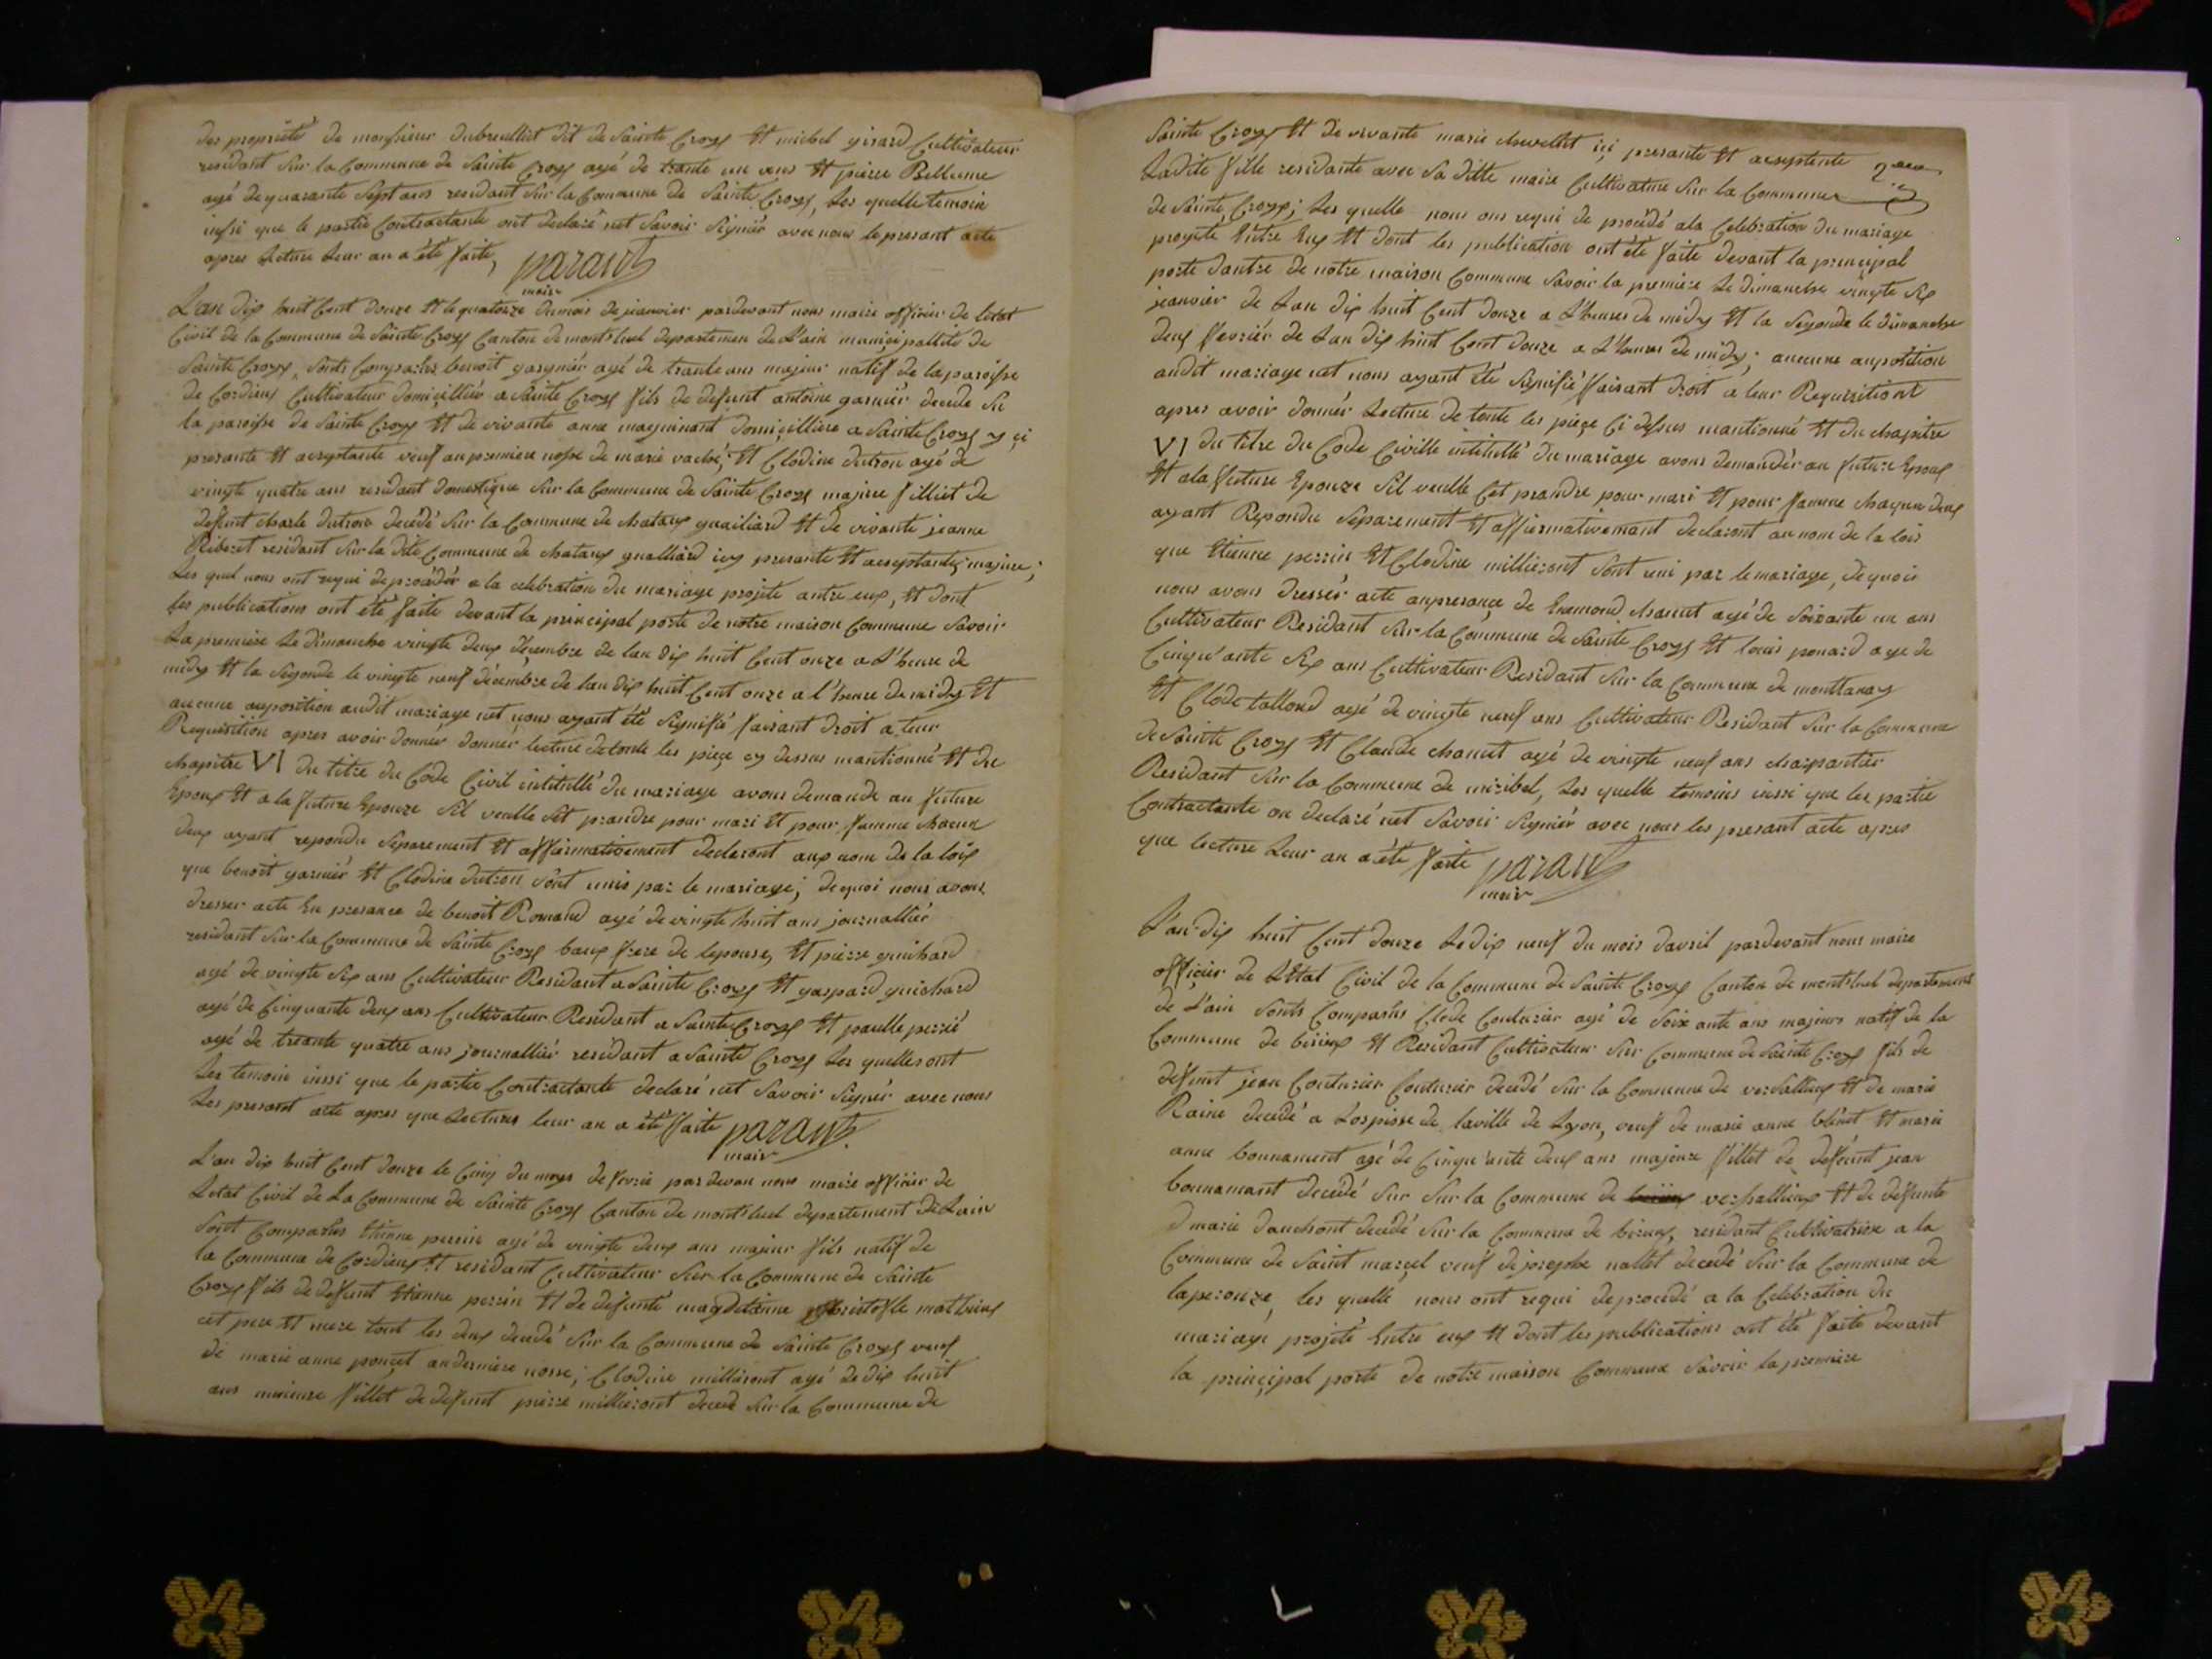 des propriété de monsieur dubreullist dit de Sainte Croys Et michel girard Cultivateur
residant Sur la Commune de Sainte Croys agé de trante un ans Et pierre Bellume
agé de quarante Sept ans residant Sur la Commune de Sainte Croys, Les quelle temoin
insi que le partie Contractante ont declaré net Savoir Signiér avec nous le presant acte
apres Lecture Leur an a été faite, parant
maire
L'an dix huit Cent douze Et le quatorze du mois de jeanvier pardevant nous maire officier de letat
Civil de la Commune de Sainte Croys Canton de montluel departemen de L'ain municipallité de
Sainte Croys, Sonts Comparhus benoit gargniér agé de trante ans majeur natif de la paroisse
de Cordieux Cultivateur domicilliér a Sainte Croys fils de defunt antoine garniér decede Su
la paroisse de Sainte Croys Et de vivante anne magninant domicilliere a Sainte Croys y çi
presante Et aceptante veuf au premiere nosse de marie vaché; Et Clodine dutron agé de
vingte quatre ans residant domestique Sur la Commune de Sainte Croys majeure filliet de
defunt charle dutron decédé Sur la Commune de chataux guailiard Et de vivante jeanne
Riberet residant Sur la dite Commune de chataux gualliard icy presante Et aceptante, majure;
Les quel nous ont requi de procédér a la celebration du mariage projité antre eux, Et dont
les publications ont été faite devant la principal porte de notre maison Commune Savoir
La premiere Le dimanche vingte deux decembre de lan dix huit Cent onze a L'heure de
midy Et la Segonde le vingte neuf décembre de lan dix huit Cent onze a l'heure de midy Et
aucune auposition audit mariage net nous ayant été Signifié faisant droit a leur
Requisition apres avoir donnér donnér lecture de toute les pieçe cy dessus mantionné Et du
chapitre VI du titre du Code Civil intitullé du mariage avons demandé au future
Epoux Et a la future Epouze Sil veulle Set prandre pour mari Et pour famme chacun
deux ayant repondu Séparement Et affirmativement declaront aux nom de la loix
que benoit garniér Et Clodine dutron Sont unis par le mariage; de quoi nous avons
dresser acte En presance de benoit Romand agé de vingte huit ans journalliér
residant Sur la Commune de Sainte Croys baux frere de lepouse, Et pierre guichard
agé de vingte Six ans Cultivateur Residant a Sainte Croys Et gaspard guichard
agé de Cinquante deux ans Cultivateur Residant a Sainte Croys Et paulle perrié
agé de treante quatre ans journalliér residant a Sainte Croys Les quelle ont
Les temoin inssi que le partie Contractante declaré net Savoir Signér avec nous
Les presant acte apres que Lectures leur an a été faite parant
maire
L'an dix huit Cent douze le Cinq du moys de fevrié par devan nous maire officiér de
Letat Civil de La Commune de Sainte Croys Canton de montluel departement de Lain
Sont Comparhus Etienne perrin agé de vingte deux ans majeur fils natif de
la Commune de Cordieux Et residant Cultivateur Sur la Commune de Sainte
Croys fils de défunt Etienne perrin Et de défunte magdelainne Christofle mathieux
cet pere Et mere tout les deux decedé Sur la Commune de Sainte Croys veuf
de marie anne ponçet an derniere nosse; Clodine milliéront agé de dix huit
ans mineure fillet de defunt pierre milliéront decedé Sur la Commune de
Sainte Croys Et de vivante marie chevellet içi presante Et aceptente
Ladite fille residante avec Sa ditte maire Cultivature Sur la Commune
de Sainte Croys; Les quelle nous ons requi de procédé a la Celebration du mariage
projeté Entre Eux Et dont les publication ont été faite devant la principal
porte dantre de notre maison Commune Savoir la premiere Le dimanche vingte Six
jeanvier de Lan dix huit Cent douze a L'heure de midy Et la Segonde le dimanche
deux fevriér de Lan dix huit Cent douze a L'heure de midy; aucune auposition
audit mariage net nous ayant été Signifié faisant droit a leur Requisitiont
apres avoir donnér Lecture de toute les pieçe Ci dessus mantionné Et du chapitre
VI du titre du Code Civille intitullé du mariage avons demandér au future Epoux
Et a la future Epouze Sil veulle Cet prandre pour mari Et pour famme chaqun deux
ayant Repondu Séparement Et affirmativemant declaront au nom de la lois
que Etienne perrin Et Clodine milliéront Sont uni par le mariage, de quoi
nous avons dressér acte anpresançe de Enemond chanut agé de Soixante un ans
Cultivateur Residant Sur la Commune de Sainte Croys Et louis ponard age de
Cinqu'ante Six ans Cultivateur Residant Sur la Commune de montlanay
Et Clode tallond agé de vingte neuf ans Cultivateur Residant Sur la Commune
de Sainte Croys Et Claude chanut agé de vingte neuf ans charpantier
Residant Sur la Commune de miribel, Les quelle temoins inssi que les partie
Contractante on declaré net Savoir Signiér avec nous les presant acte apres
que lecture Leur an a été faite parant
maire
L'an dix huit Cent douze Le dix neuf du mois davril pardevant nous maire
officier de L'Etat Civil de la Commune de Sainte Croys Canton de montluel departement
de L'ain Sonts Comparhs Clode Couturier agé de Soixante ans majeurs natif de la
Commune de birieux Et Residant Cultivateur Sur Commune de Sainte Croys fils de
defunt jean Couturier Couturier decédé Sur la Commune de versallieux Et de marie
Raine decedé a L'ospisse de laville de Lyon, veuf de marie anne blénet Et marie
anne bonnament agé de Cinqu'ante deux ans majeure fillet de defeunt jean
bonnamant decedé Sur Sur la Commune de versallieux Et de defunte
dmarie dauchont decédé Sur la Commune de birieux, residant Cultivatrise a la
Commune de Saint marçel veuf de josephe nallet decedé Sur la Commune de
laperouze, les quelle nous ont requi de procedé a la Celebration du
mariage projeté Entre eux Et dont les publications ont été faite devant
la prinçipal porte de notre maison Commune Savoir la premiere